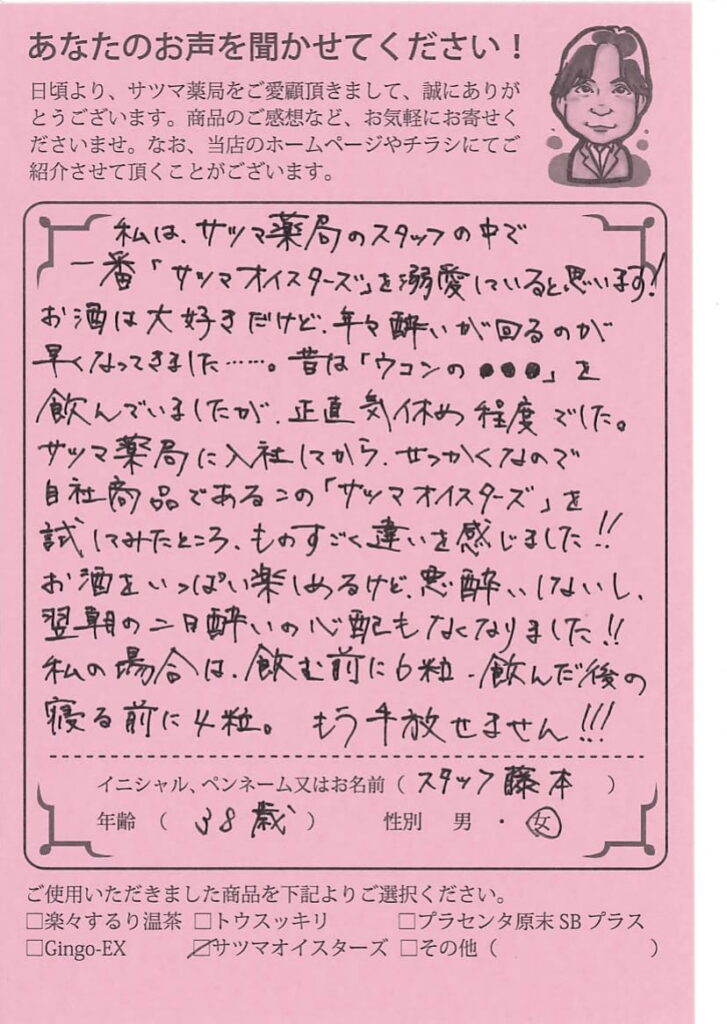 あなたのお声を聞かせてください！
日頃より、サツマ薬局をご愛顧頂きまして、誠にありが
とうございます。商品のご感想など、お気軽にお寄せく
ださいませ。なお、当店のホームページやチラシにてご
紹介させて頂くことがございます。
私は、サツマ薬局のスタッフの中で
一番「サツマオイスターズ」を溺愛していると思います!
お酒は大好きだけど、年々酔いが回るのが
早くなってきました……。昔は「ウコンの●●●」を
飲んでいましたが、正直気休め程度でした。
サツマ薬局に入社してから、せっかくなので
自社商品であるこの「サツマオイスターズ」を
試してみたところ、ものすごく違いを感じました!!
お酒をいっぱい楽しめるけど、悪酔いしないし、
翌朝の二日酔いの心配もなくなりました!!
私の場合は、飲む前に6粒、飲んだ後の
寝る前に4粒。もう手放せません!!!
イニシャル、ペンネーム又はお名前（ スタッフ藤本 ）
年齢 （ 38歳 ） 性別 男 ・ 女
ご使用いただきました商品を下記よりご選択ください。
□楽々するり温茶 □トウスッキリ □プラセンタ原末 SB プラス
□Gingo-EX ☑サツマオイスターズ □その他（ ）